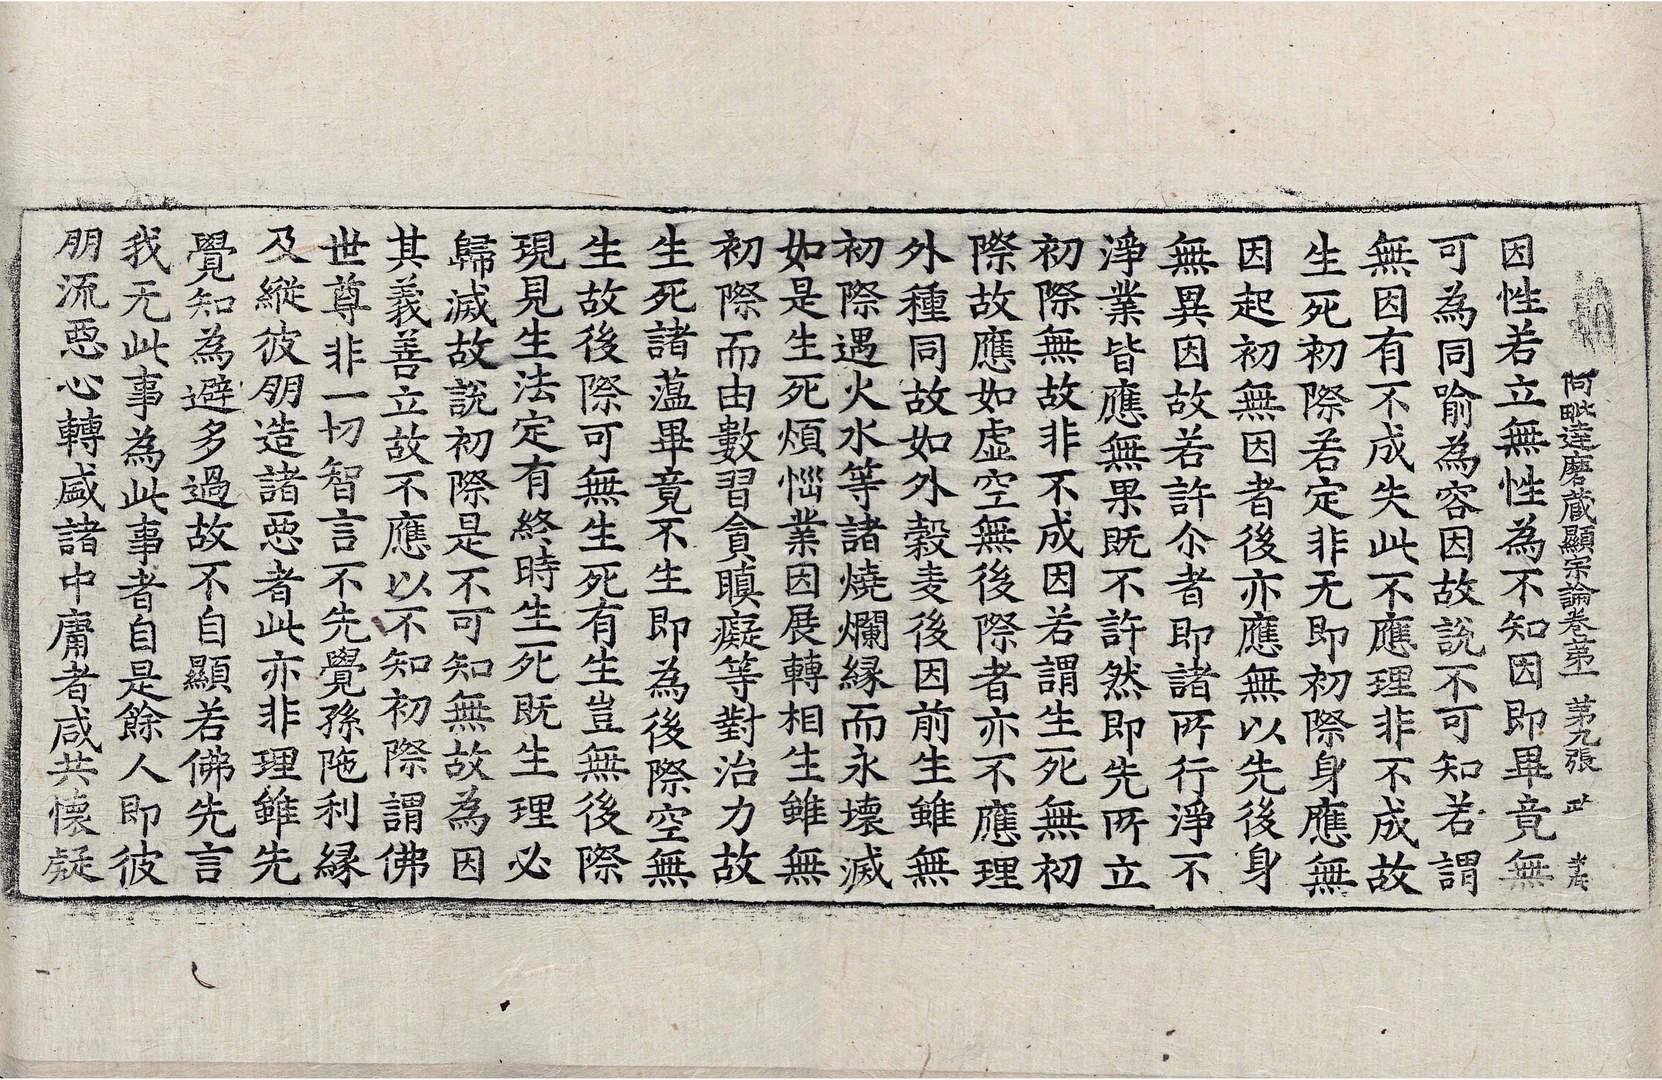 阿毗達磨藏顯宗論卷第一 第九張 𠀤
因性若立無性為不知因即畢竟無
可為同喻為容因故說不可知若謂
無因有不成失此不應理非不成故
生死初際若定非无即初際身應無
因起初無因者後亦應無以先後身
無異因故若許尒者即諸所行淨不
淨業皆應無果既不許然即先所立
初際無故非不成因若謂生死無初
際故應如虛空無後際者亦不應理
外種同故如外穀麦後因前生雖無
初際遇火水等諸燒爛緣而永壞滅
如是生死煩惱業因展轉相生雖無
初際而由數習貪瞋癡等對治力故
生死諸薀畢竟不生即為後際空無
生故後際可無生死有生豈無後際
現見生法定有終時生死既生理必
歸滅故說初際是不可知無故為因
其義善立故不應以不知初際謂佛
世尊非一切智言不先覺孫陁利緣
及縱彼朋造諸惡者此亦非理雖先
覺知為避多過故不自顯若佛先言
我无此事為此事者自是餘人即彼
朋流惡心轉盛諸中庸者咸共懷疑